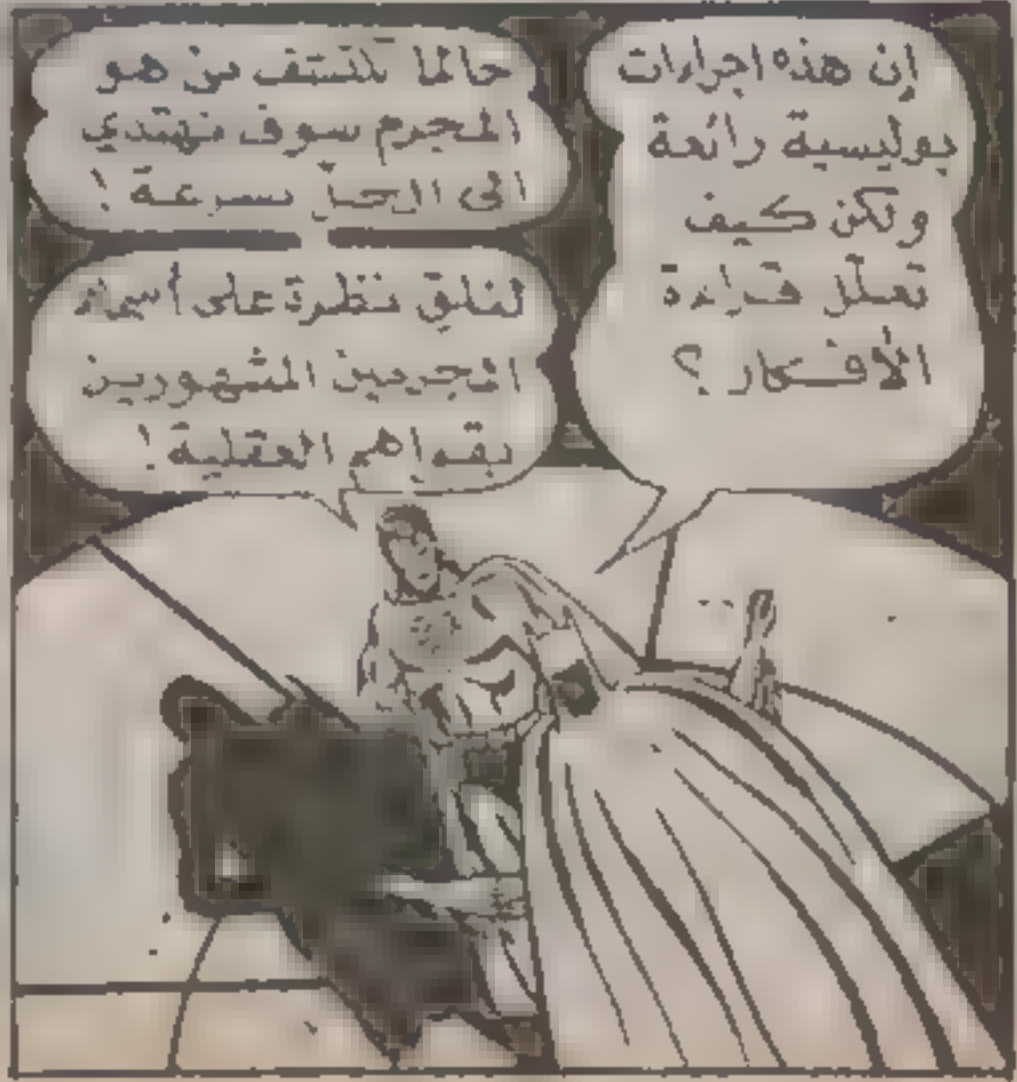 إن هذه اجراءات
بوليسية رائعة
ولكن كيف
تعلّل قراءة
الأفكار؟
حالما نكتشف من هو
المجرم سوف نهتدي
الى الحل بسرعة!
لنلق نظرة على أسماء
المجرمين المشهورين
بقواهم العقلية!